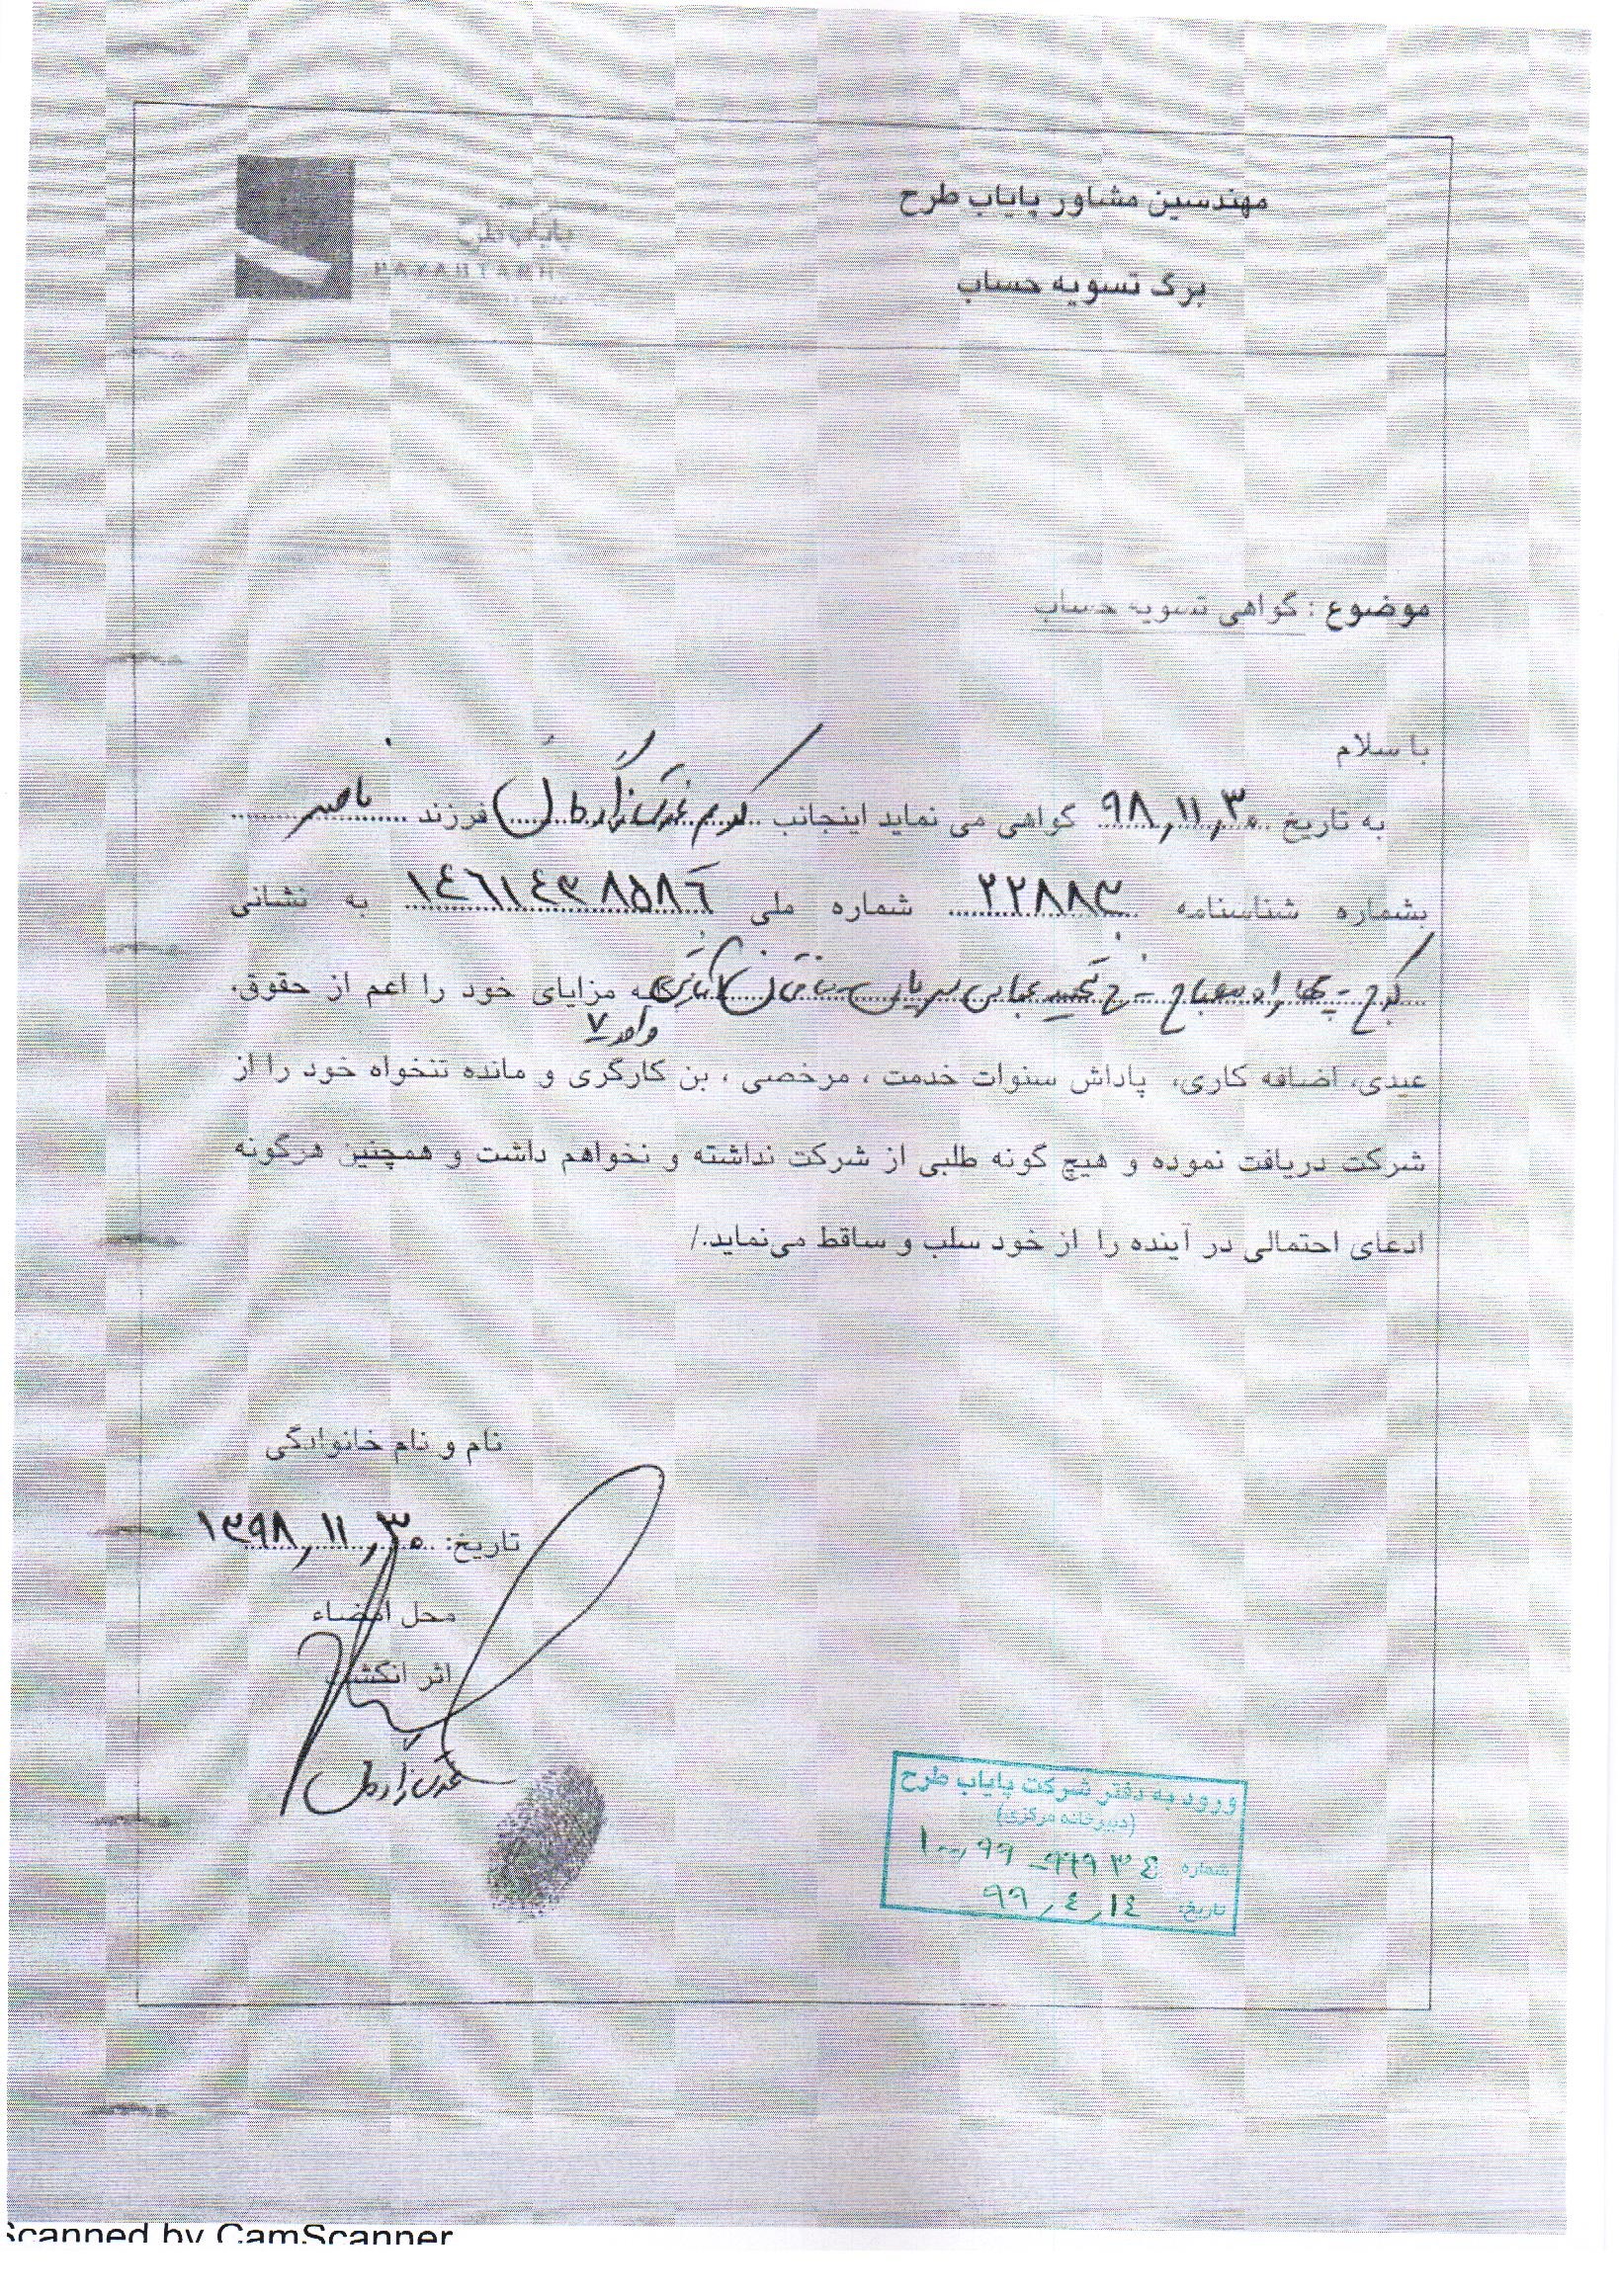 مهندسین مشاور پایاب طرح
پایاب طرح
PAYABTARH
برگ تسویه حساب
موضوع : گواهی تسویه حساب
با سلام
به تاریخ ۹۸,۱۱,۳۰ گواهی می نماید اینجانب فرزند ناصر
بشماره شناسنامه ۲۲۸۸۳ شماره ملی ۱۴۶۱۴۳۸۵۸۶ به نشانی
کرج - چهارراه مصباح - مزایای خود را اعم از حقوق،
واحد ۷
عیدی، اضافه کاری، پاداش سنوات خدمت ، مرخصی ، بن کارگری و مانده تنخواه خود را از
شرکت دریافت نموده و هیچ گونه طلبی از شرکت نداشته و نخواهم داشت و همچنین هرگونه
ادعای احتمالی در آینده را از خود سلب و ساقط می‌نماید./
نام و نام خانوادگی
تاریخ: ۱۳۹۸,۱۱,۳۰
محل امضاء
اثر انگشت
ورود به دفتر شرکت پایاب طرح
(دبیرخانه مرکزی)
شماره
تاریخ: ۹۹,۴,۱۴
Scanned by CamScanner